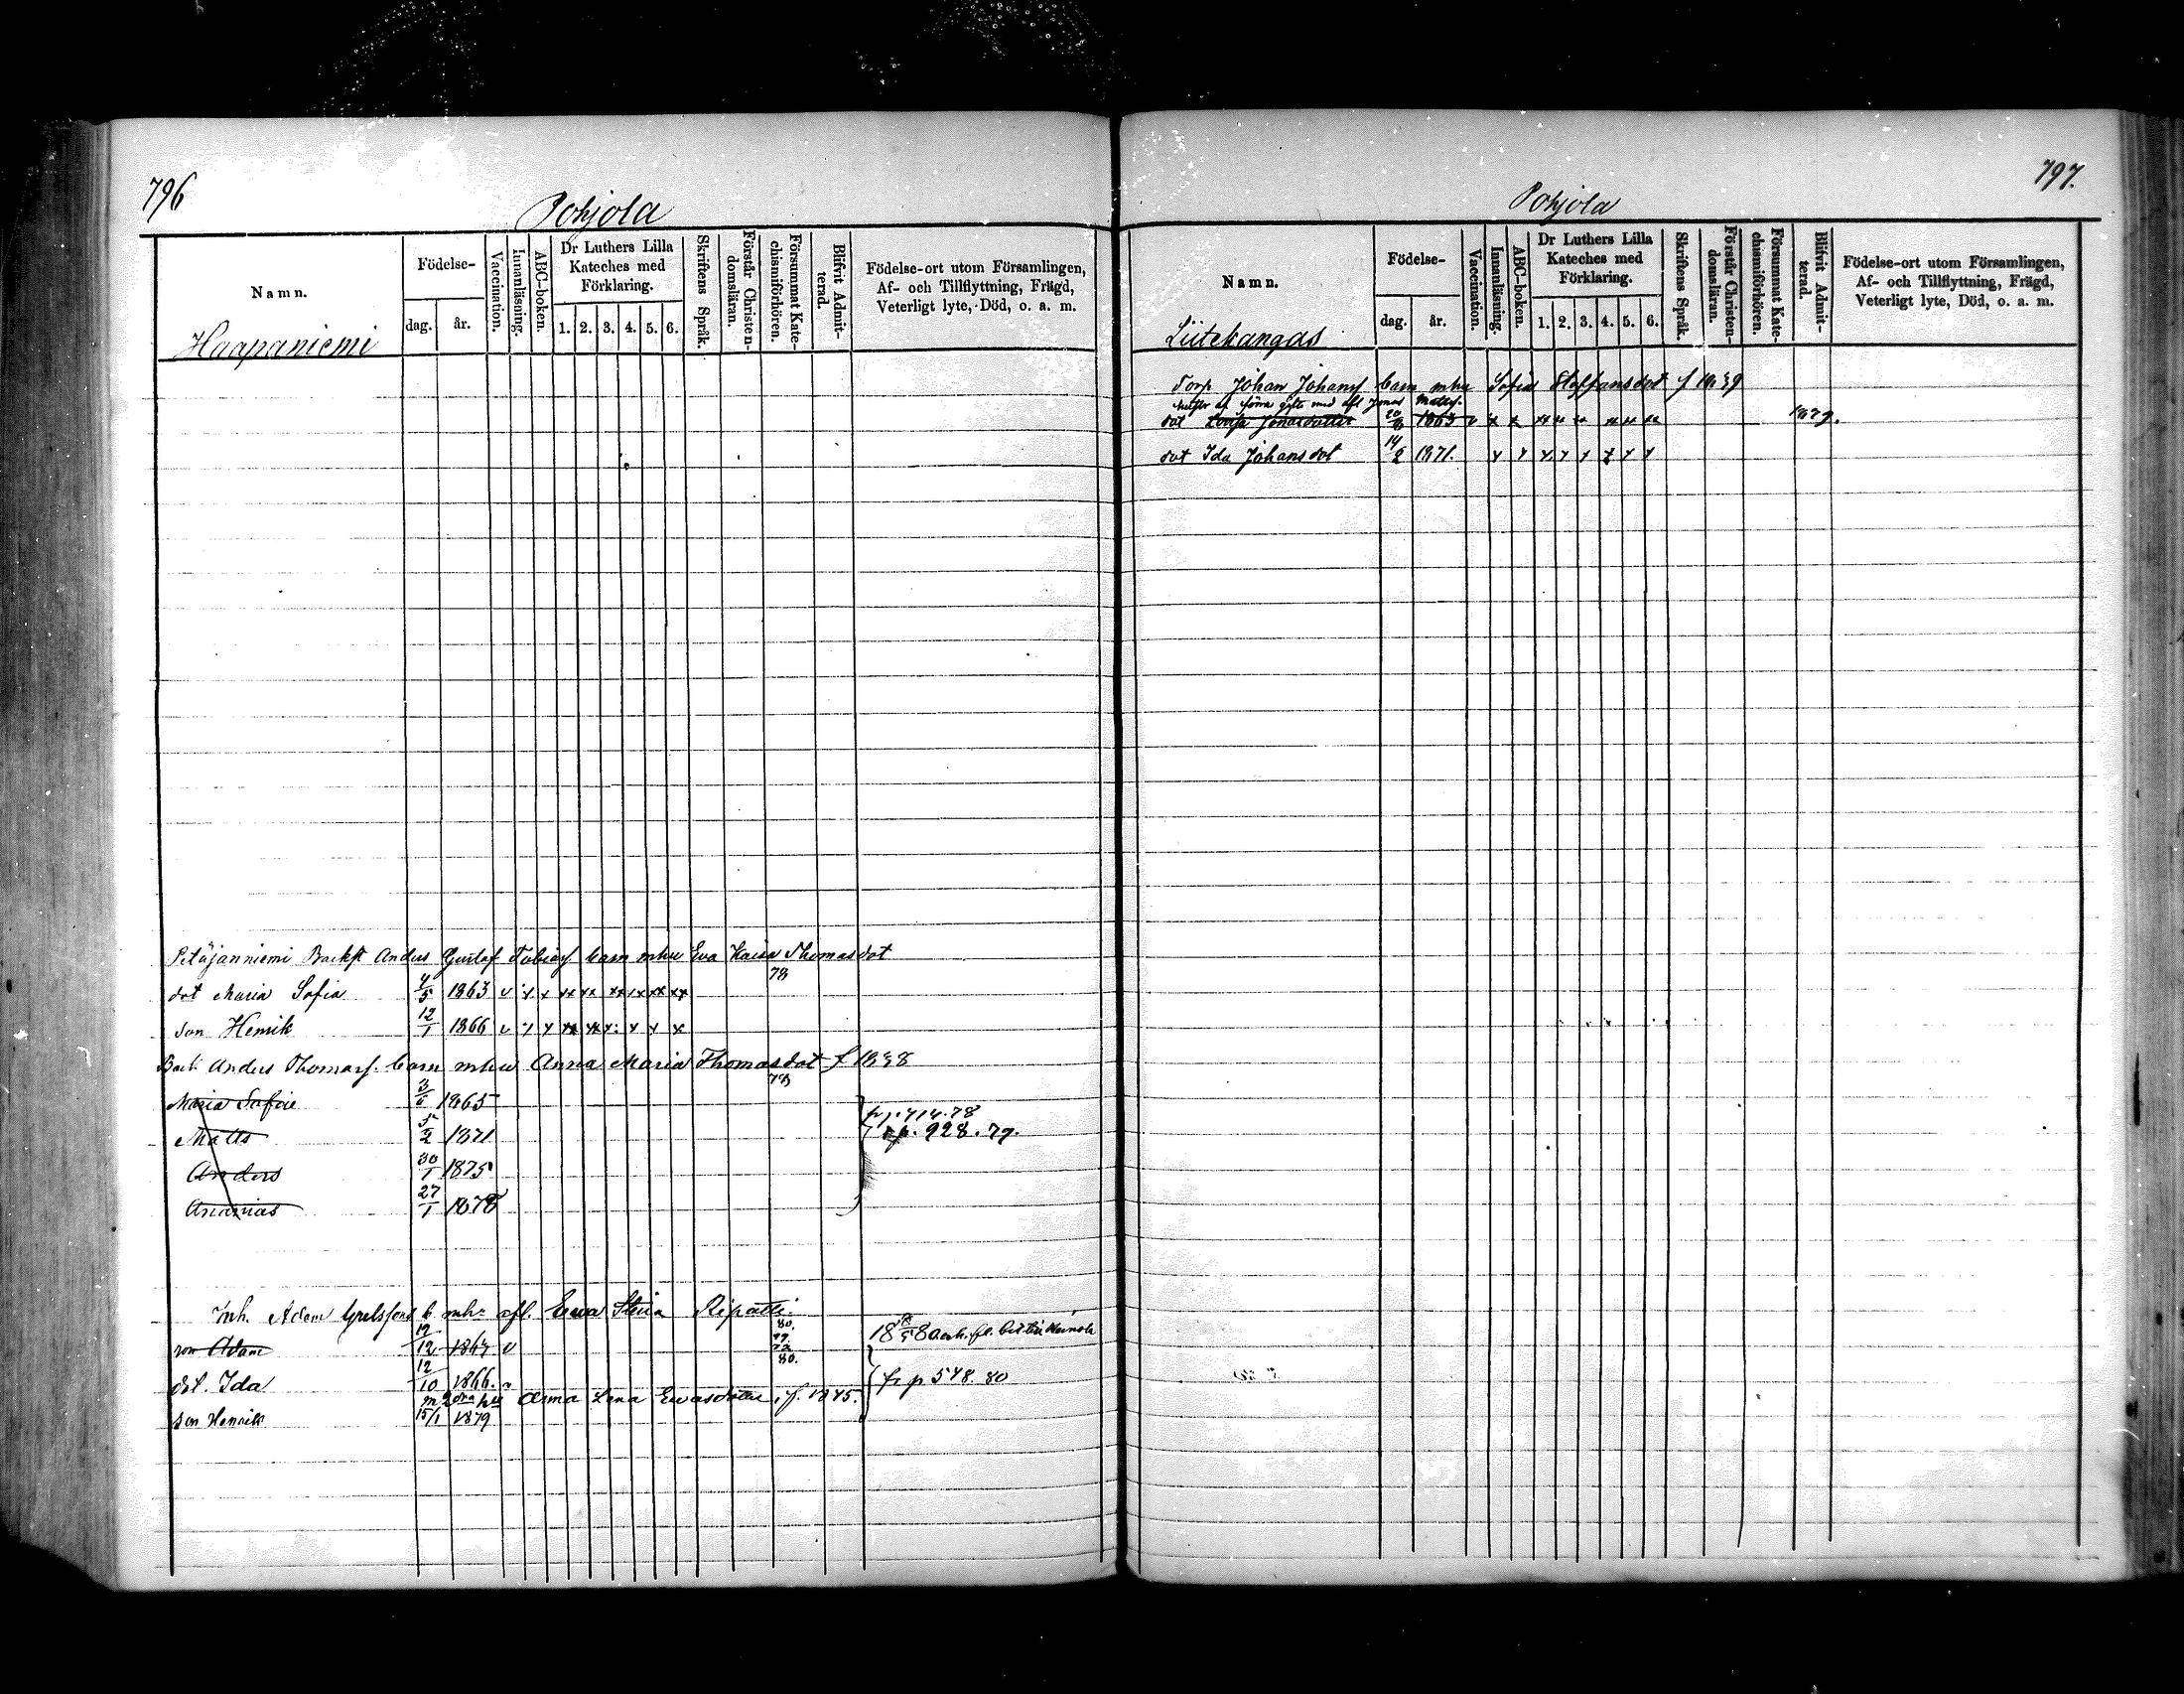 796
Pohjola
Namn.
Födelse-
dag.
år.
Vaccination.
Innanläsning.
ABC-boken.
Dr Luthers Lilla
Kateches med
Förklaring.
1. 2. 3. 4. 5. 6.
Skriftens Språk.
Förstår Christen-
domsläran.
Försummat Kate-
chismiförhören.
Blifvit Admit-
terad.
Födelse-ort utom Församlingen,
Af- och Tillflyttning, Frägd,
Veterligt lyte, Död, o. a. m.
Haapaniemi
Petäjänniemi Backst Anders Gustaf Tobiasf barn mhu Eva Kaisa Thomasdot
dot Maria Sofia 4/5 1863 v x x xx xx xx xx xx xx 78
son Henrik 12/1 1866 v x x xx xx x x x x
Back. Anders Thomasf. barn mhu Anna Maria Thomasdot f 1838
Maria Sofia 3/6 1865 78 p. 714. 78
Matts 5/2 1871 p. 928. 79.
Anders 30/1 1875
Ananias 27/1 1878
Inh. Adam Grelsson b. mhu afl. Ewa Stina Ripatti.
son Adam 19/12 1864 v 80.
dot. Ida 12/10 1866. 80. fr p 548. 80
m 2dra hu Anna Lena Ewasdotter, f. 1845.
son Henrik 15/1 1879
797.
Pohjola
Namn.
Födelse-
dag.
år.
Vaccination.
Innanläsning.
ABC-boken.
Dr Luthers Lilla
Kateches med
Förklaring.
1. 2. 3. 4. 5. 6.
Skriftens Språk.
Förstår Christen-
domsläran.
Försummat Kate-
chismiförhören.
Blifvit Admit-
terad.
Födelse-ort utom Församlingen,
Af- och Tillflyttning, Frägd,
Veterligt lyte, Död, o. a. m.
Liitekangas
Torp Johan Johansf barn mhu Sofia Staffansdot f 1839
af förra gifte med afl Jonas Mattsf.
dot Lovisa Jonasdotter 20/8 1863 v x x xx xx xx xx xx xx 1879.
dot Ida Johansdot 14/2 1871. x x x x x x x x